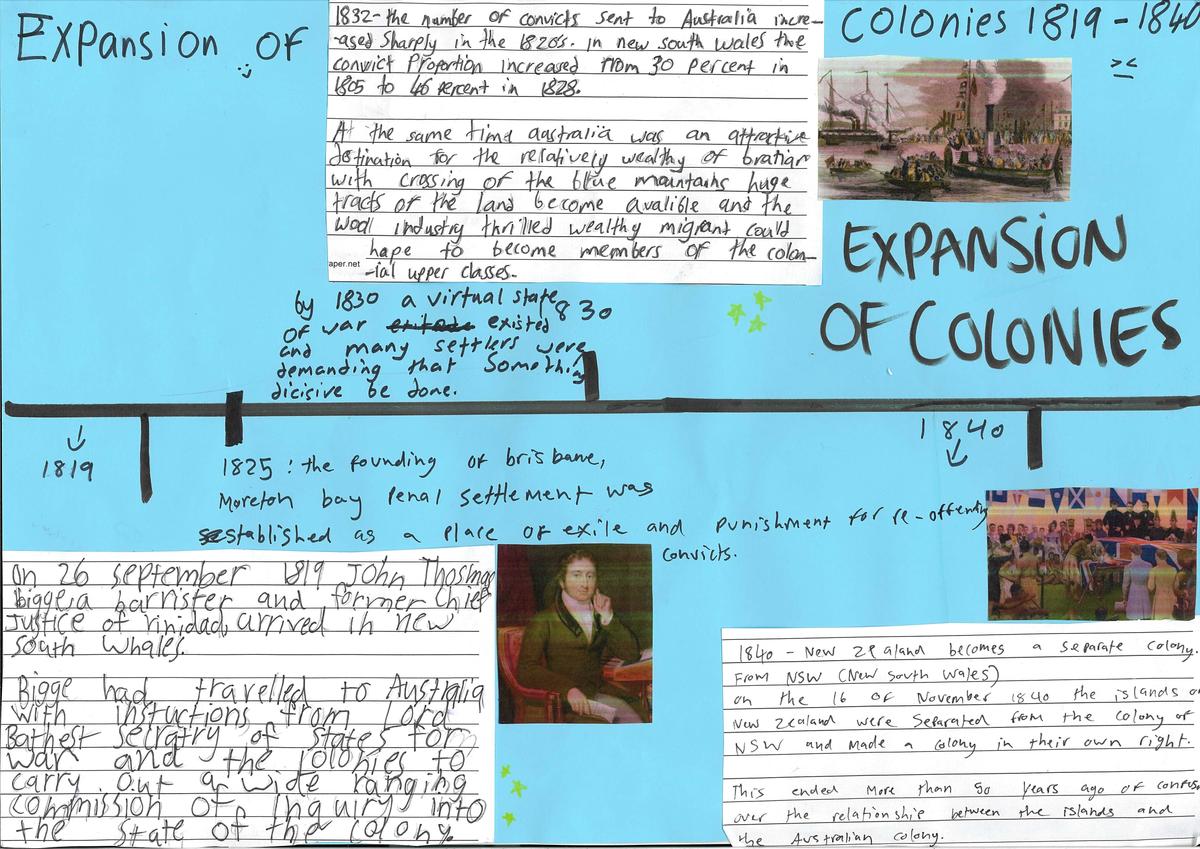 Expansion of
Colonies 1819 - 1840
1832- the number of convicts sent to Australia incre-
-ased sharply in the 1820's. in new south wales the
convict Proportion increased from 30 percent in
1805 to 46 Percent in 1828.
At the same time australia was an attractive
destination for the relatively wealthy of
with crossing of the blue mountains huge
tracts of the land become avalible and the
wool industry thrilled wealthy migrant could
hape to become members of the colon-
-ial upper classes.
aper.net
EXPANSION
OF COLONIES
by 1830 a virtual state
of war existed
and many settlers were
demanding that Somethin
dicisive be done.
830
1819
1825 : the founding of brisbane,
Moreton bay Penal settlement was
established as a place of exile and punishment for re-offending
convicts.
1840
On 26 september 1819 John
Bigge, a barrister and former Chief
Justice of rinidad, arrived in new
South Whales.
Bigge had travelled to Australia
with instuctions from Lord
Bathest secratry of states for
war and the colonies to
carry out a wide ranging
commission of Inquiry into
the state of the colony.
1840 - New Zealand becomes a separate colony.
From NSW (New South Wales)
on the 16 of November 1840 the islands o
New Zealand were Separated from the colony of
NSW and Made a colony in their own right.
This ended More than 50 years ago of confus
over the relationship between the islands and
the Australian colony.